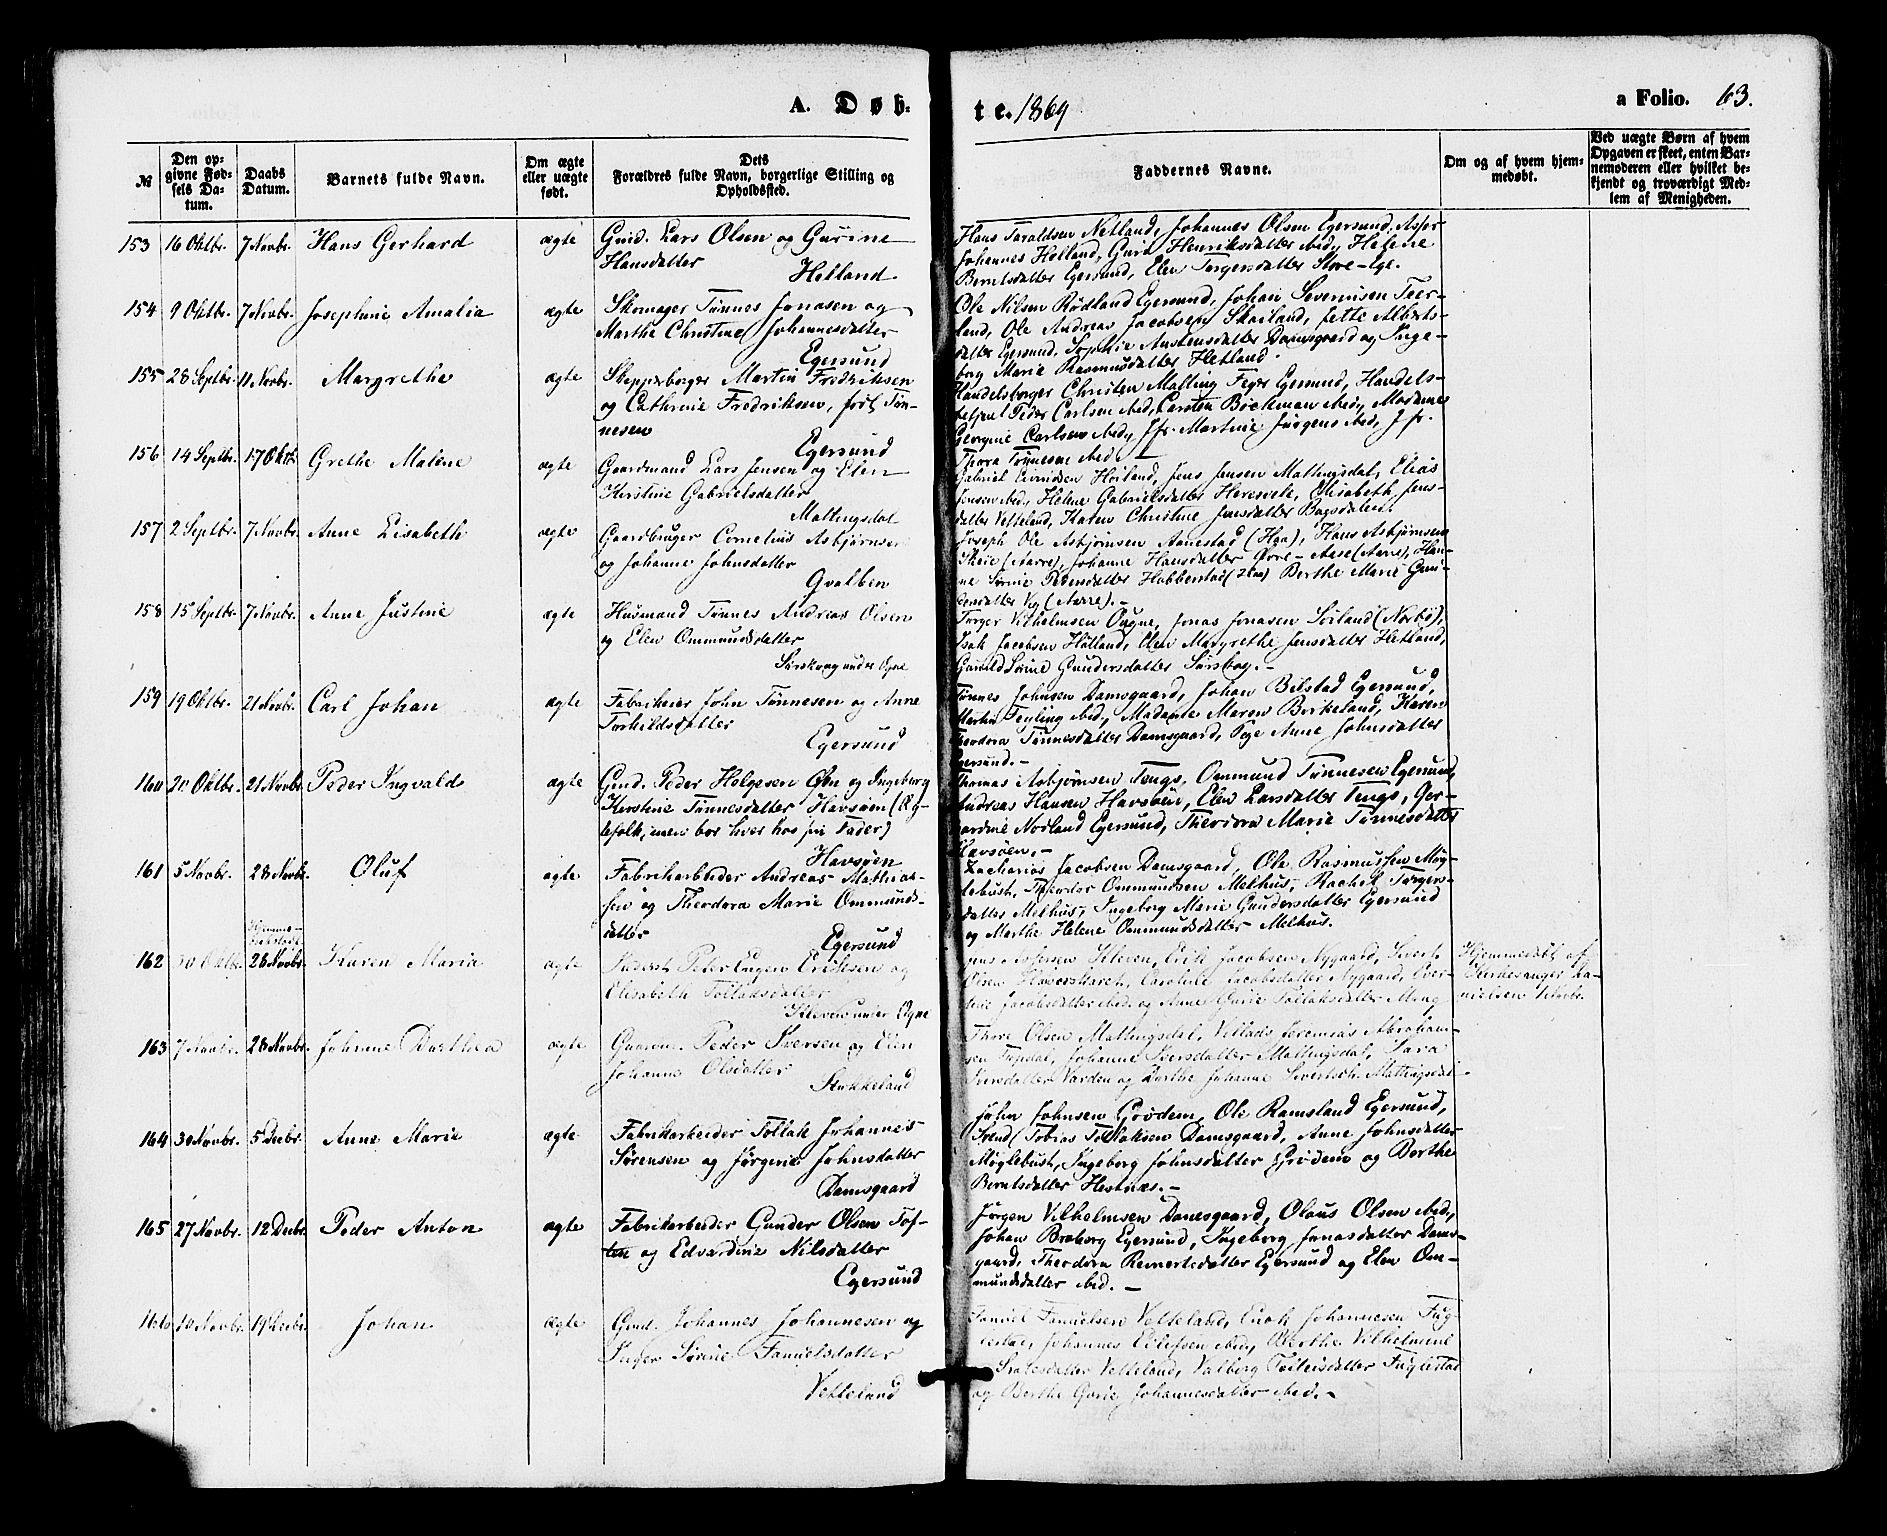 A. Døb-
te. 1869
a Folio. 63.
№
Den op-
givne Fød-
sels Da-
tum.
Daabs
Datum.
Barnets fulde Navn.
Om ægte
eller uægte
født.
Dets
Forældres fulde Navn, borgerlige Stilling og
Opholdssted.
Faddernes Navne.
Om og af hvem hjem-
medøbt.
Ved uægte Børn af hvem
Opgaven er skeet, enten Bar-
nemoderen eller hvilket be-
kjendt og troværdigt Med-
lem af Menigheden.
153 16 Oktbr. 7 Novbr. Hans Gerhard ægte Gmd. Lars Olsen og Gurine
Hansdatter
Helland
Hans Taraldsen Netland, Johannes Olsen Egersund, Asser
Johannes Holland, Guri Henriksdatter ibid., Helene
Berntsdatter Egersund, Elen Torgersdatter Store-Ege.
154 9 Oktbr. 7 Novbr. Josephine Amalia ægte Skomager Tønnes Jonasen og
Marthe Christine Johannesdatter
Egersund
Ole Nilsen Rødland Egersund, Johan Severinsen Teer-
land, Ole Andreas Jacobsen Skadland, Jette Alberts-
datter Egersund, Sophie Austensdatter Damsgaard og Inge-
borg Marie Rasmusdatter Hetland.
155 28 Septbr. 11 Novbr. Margrethe ægte Skipperborger Martin Fredriksen
og Cathrine Fredriksen, født Tøn-
nesen
Egersund
Handelsborger Christen Malling Feyer Egersund, Handels-
Peder Carlsen ibid., Carsten Bøckman ibid., Madame
Georgine Carlsen ibid., Jfr. Martine Jürgens ibid., Jfr.
Thora Tønnesen ibid.
156 14 Septbr. 17 Oktbr. Grethe Malene ægte Gaardmand Lars Jensen og Elen
Kerstine Gabrielsdatter
Mattingsdal
Gabriel Eivindsen Høiland, Jens Jensen Mattingsdal, Elias
Jensen ibid., Helene Gabrielsdatter Herevele, Elisabeth Jens-
datter Vetteland, Karen Christine Jensdatter
157 2 Septbr. 7 Novbr. Anne Lisabeth ægte Gaardbruger Cornelius Asbjørnsen
og Johanne Johnsdatter
Gvalben
Joseph Ole Asbjørnsen Aanestad (Haa), Hans Asbjørnsen
Skeie (Narre), Johanne Hansdatter Øvre-Aase (Narre), Han-
ne Serine Pedersdatter Habberstad (Haa) Berthe Marie Gun-
dersdatter Vig (Narre).-
158 15 Septbr. 7 Novbr. Anne Justine ægte Husmand Tønnes Andreas Olsen
og Elen Ommundsdatter
under Ogne
Torger Vilhelmsen Ougne, Jonas Jonasen Sørland (Nærbø),
Isak Jacobsen Hølland, Elen Margrethe Jensdatter Hetland,
Gunild Serine Gundersdatter
159 19 Oktbr. 21 Novbr. Carl Johan ægte Fabrikeier John Tønnesen og Anne
Torkildsdatter
Egersund
Tønnes Johnsen Damsgaard, Johan Bilstad Egersund,
Martin Feyling ibid., Madame Maren Birkeland, Karen
Theodora Tønnesdatter Damsgaard, Pige Anne Johnsdatter
Egersund.-
160 20 Oktbr. 21 Novbr. Peder Ingvald ægte Gmd. Peder Helgesen Øen og Ingeborg
Kerstine Tønnesdatter Havsøen (Æg-
tefolk, men bor hver hos sin Fader)
Havsøen
Thomas Asbjørnsen Tengs, Ommund Tønnesen Egersund,
Andreas Hansen Havsøen, Elen Larsdatter Tengs, Ger-
hardine Nodland Egersund, Theodora Marie Tønnesdatter
Havsøen.-
161 5 Novbr. 28 Novbr. Oluf ægte Fabrikarbeider Andreas Mathias-
sen og Theodora Marie Ommunds-
datter
Egersund
Zacharias Jacobsen Damsgaard, Ole Rasmussen Møg-
lebust, Theodor Ommundsen Melhus, Rachel Torgers-
datter Melhus, Ingeborg Marie Gundersdatter Egersund
og Marthe Helene Ommundsdatter Melhus.
162 30 Oktbr. 28 Novbr. Karen Maria ægte Peter Eugen Eriksen og
Elisabeth Tollaksdatter
Kleven under Ogne
Asbjørnsen Kleven, Erik Jacobsen Nygaard, Sivert
Olsen Haverskaret, Caroline Jacobsdatter Nygaard, Ever-
tine Jacobsdatter ibid. og Anne Gurie Tollaksdatter
Hjemmedøbt af
Kirkesanger Da-
nielsen
163 7 Novbr. 28 Novbr. Johanne Dorthea ægte Gaardm. Peder Iversen og Elen
Johanne Olsdatter
Stokkeland
Thore Olsen Mattingsdal, Villads Jeremias Abraham-
sen Tupdal, Johanne Iversdatter Mattingsdal, Sara
Iversdatter Varden og Dorthe Johanne Sivertsdt. Mattingsdal.
164 30 Novbr. 5 Decbr. Anne Marie ægte Fabrikarbeider Tollak Johannes
Sørensen og Jørgine Johnsdatter
Damsgaard
John Johnsen Grødem, Ole Ramsland Egersund,
Svend Tobias Tollaksen Damsgaard, Anne Johnsdatter
Møglebust, Ingeborg Johnsdatter Grødem og Berthe
Berntsdatter Hestnæs.-
165 27 Novbr. 12 Decbr. Peder Anton ægte Fabrikarbeider Gunder Olsen Tof-
ten og Edvardine Nilsdatter
Egersund
Jørgen Vilhelmsen Damsgaard, Olaus Olsen ibid.,
Johan Broberg Egersund, Ingeborg Jonasdatter Dams-
gaard, Theodora Reinertsdatter Egersund og Elen Om-
mundsdatter ibid.-
166 10 Novbr. 19 Decbr. Johan ægte Gmd. Johannes Johannesen og
Inger Serine Samuelsdatter
Vetteland
Samuel Samuelsen Vetteland, Enok Johannesen Fug-
lestad, Johannes Edlefsen ibid., Berthe Vilhelmine
Vetteland, Valborg Fuglestad
og Berthe Gurie Johannesdatter ibid.-